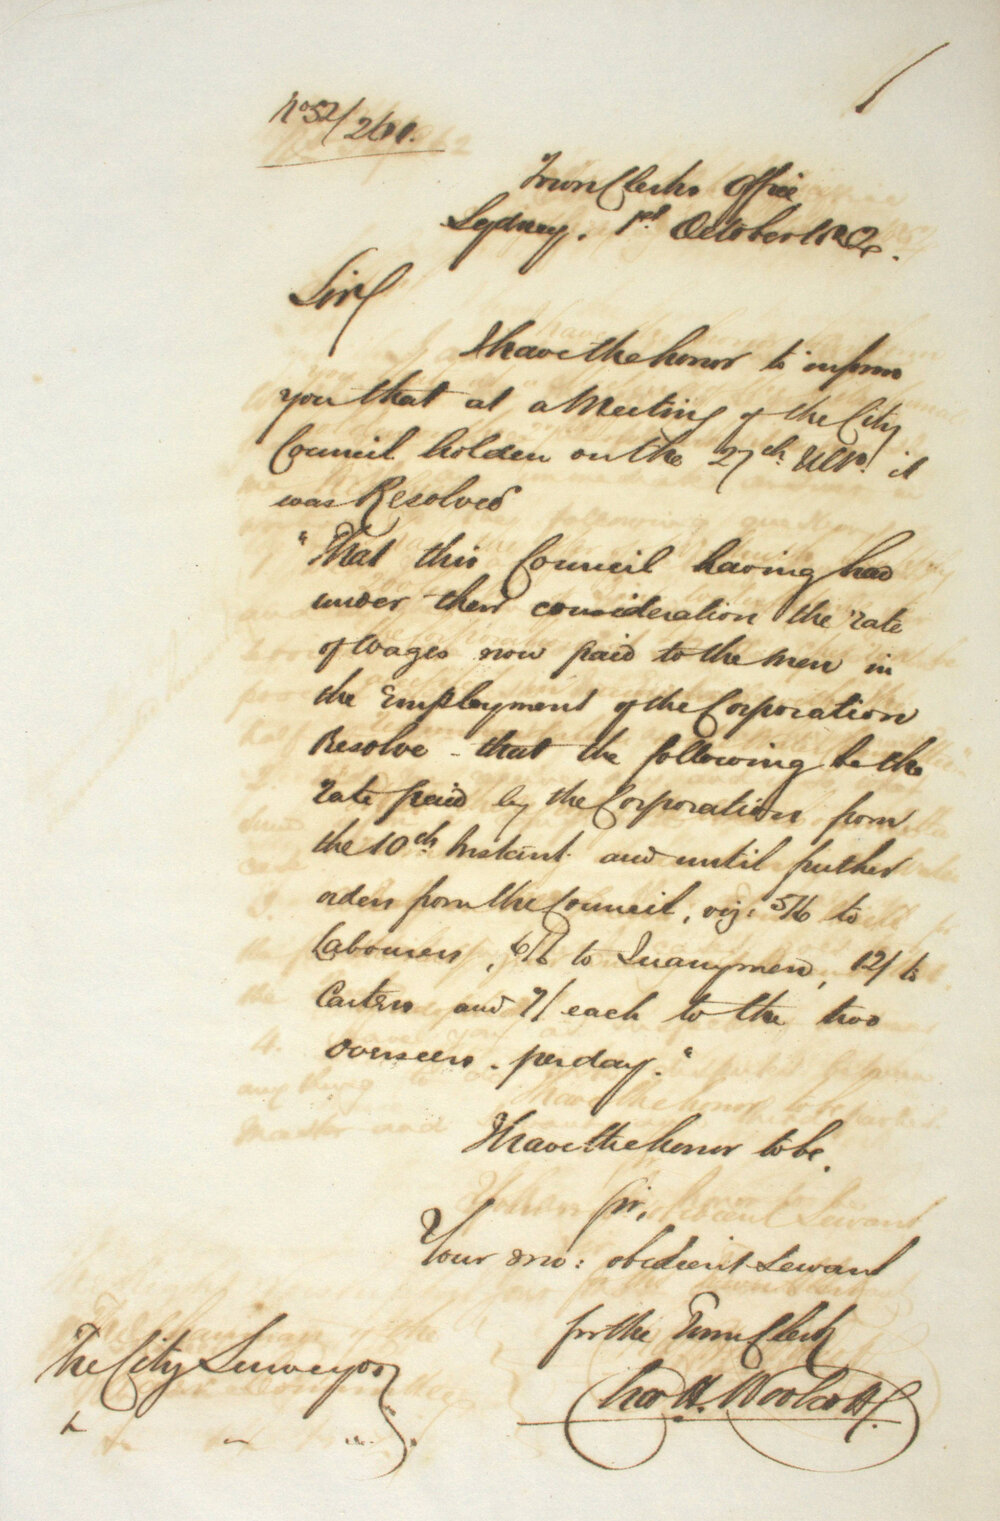 No 52/260.
Town Clerks Office
Sydney. 1st October 1852.
Sir
I have the honor to inform
you that at a Meeting of the City
Council holden on the 27th Ulto. it
was Resolved
"That this Council having had
under their consideration the rate
of Wages now paid to the men in
the Employment of the Corporation
Resolve - that the following be the
rate paid by the Corporation from
the 10th Instant and until further
orders from the Council, viz: 5/6 to
Labourers, 6/6 to Quarrymen, 12/ to
Carters and 7/ each to the two
overseers. per day."
I have the honor to be.
Sir,
Your mo: obedient Servant
for the Town Clerk
Chas H. Woolcott.
The City Surveyor